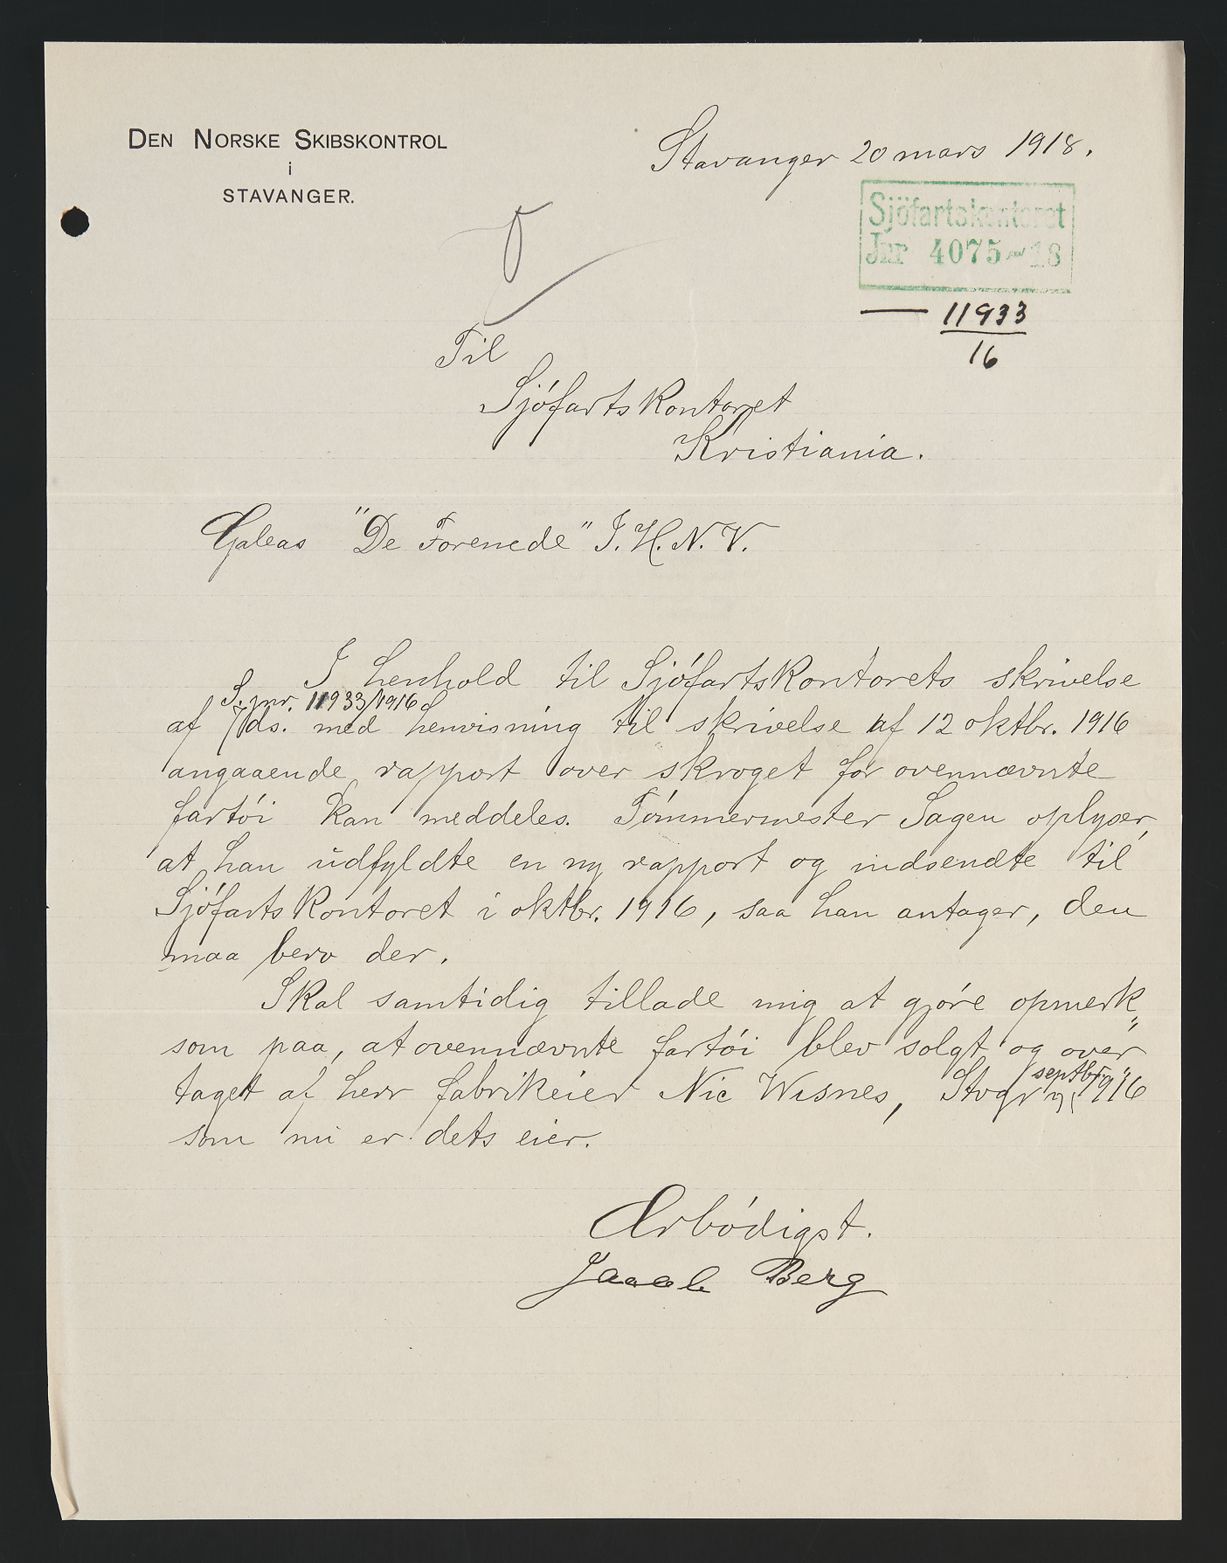 DEN NORSKE SKIBSKONTROL
i
STAVANGER.
Stavanger 20 mars 1918.
Sjöfartskontoret
Jnr 4075 - 18
— 11933
16
Til
Sjöfartskontoret
Kristiania.
Galeas "De Forenede" J.H.N.V.
I henhold til Sjöfartskontorets skrivelse
S. jnr. 11933/1916
af 7 ds. med henvisning til skrivelse af 12 oktbr. 1916
angaaende rapport over skroget for ovennævnte
fartöi kan meddeles. Tömmermester Sagen oplyser,
at han udfyldte en ny rapport og indsendte til
Sjöfartskontoret i oktbr. 1916, saa han antager, den
maa bero der.
Skal samtidig tillade mig at gjöre opmerk"
som paa, at ovennævnte fartöi blev solgt og over"
taget af herr fabrikeier Nic Wisnes, Stvgr septbr 1916
som nu er dets eier.
Ærbödigst.
Jacob Berg